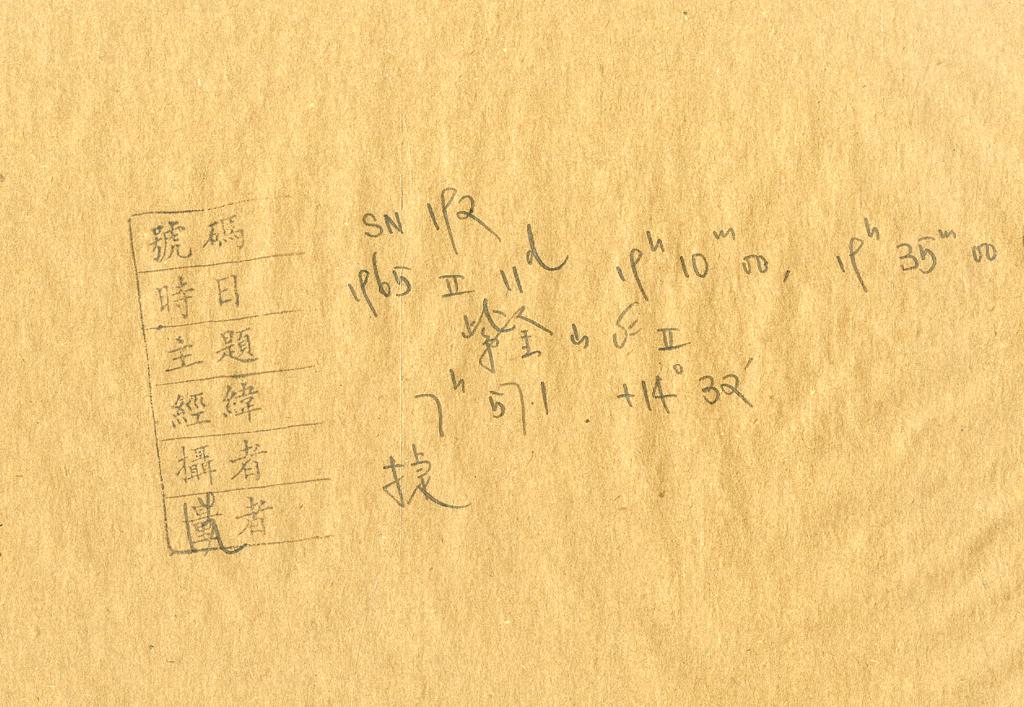 號碼 SN 192
時日 1965 II 11d 19h 10m 00, 19h 35m 00
主題 紫金山 II
經緯 7h 57.1 +14° 32′
攝者
者